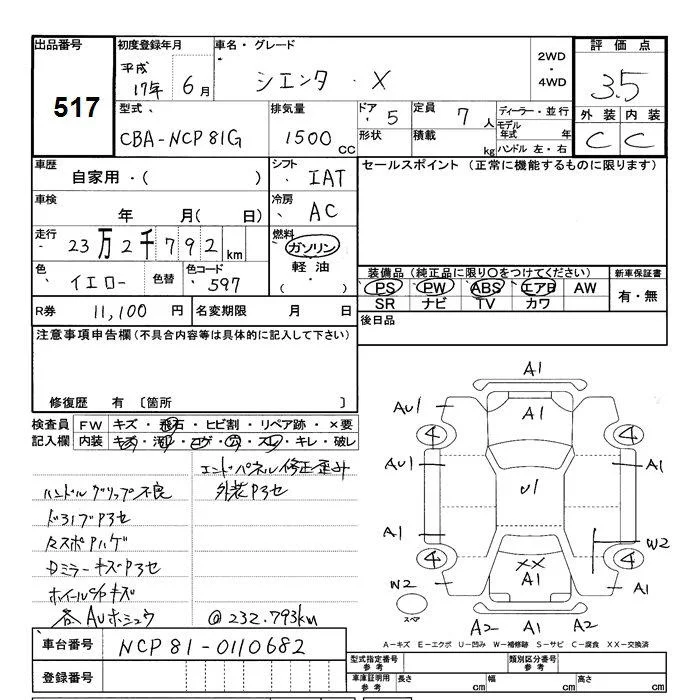 出品番号 初度登録年月 車名・グレード 評価点
517 平成 17年 6月 シエンタ・X 2WD・4WD 3.5
外装 内装
C C
型式 排気量 ドア・5 定員 7人 ディーラー・並行
CBA-NCP81G 1500cc 形状 積載 kg モデル年式 年
ハンドル 左・右
車歴 シフト セールスポイント (正常に機能するものに限ります)
自家用・( ) ・ IAT
車検 冷房
年 月( 日) ・ AC
走行 燃料
23万2千792km ガソリン
軽油
・( )
色 イエロー 色替 色コード 597
装備品(純正品に限り〇をつけてください) 新車保証書
PS PW ABS エアB AW 有・無
SR ナビ TV カワ
R券 11,100円 名変期限 月 日
後日品
注意事項申告欄(不具合内容等は具体的に記入して下さい)
修復歴 有 〔箇所 〕
検査員記入欄 FW キズ・飛石・ヒビ割・リペア跡・×要
内装 キズ・汚レ・コゲ・穴・スレ・キレ・破レ
エンドパネル修正歪み
ハンドルグリップ不良 外装Pヨセ
各AUホシュウ @232.793km
A1
A1
AU1
4 4
AU1 A1
U1
A1 W2
4 4
××
A1
W2 A1
スペア
A2 A1 A2
A-キズ E-エクボ U-凹み W-補修跡 S-サビ C-腐食 XX-交換済
車台番号 NCP81-0110682
登録番号
型式指定番号 参考 類別区分番号 参考
車庫証明用 参考 長さ cm 幅 cm 高さ cm